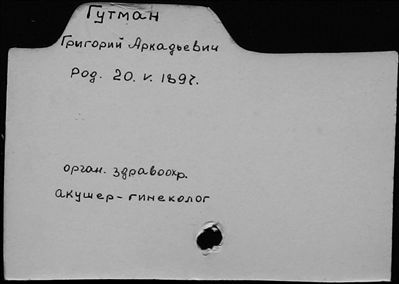 Гутман
Григорий Аркадьевич
род. 20. V. 1897.
орган. здравоохр.
акушер-гинеколог